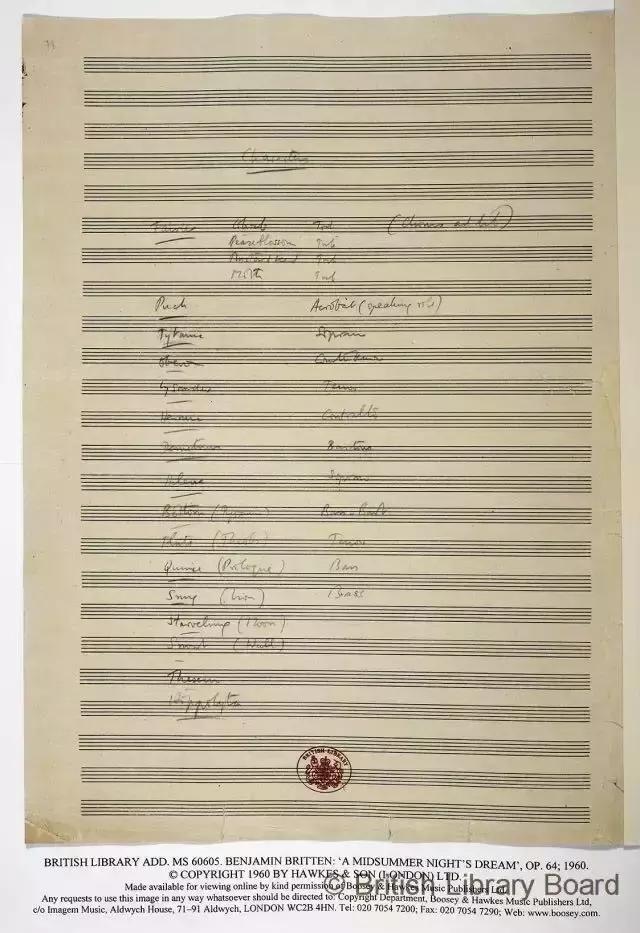 Characters
Fairies Cobweb Treb (Chorus ad lib)
Peaseblossom Treb
Mustardseed Treb
Moth Treb
Puck Acrobat (speaking role)
Tytania Soprano
Oberon Counter tenor
Lysander Tenor
Hermia Contralto
Demetrius Baritone
Helena Soprano
Bottom (Pyramus) Bass-Barit
Flute (Thisbe) Tenor
Quince (Prologue) Bass
Snug (Lion) Bass
Starveling (Moon)
Snout (Wall)
Theseus
Hippolyta
BRITISH LIBRARY
BRITISH LIBRARY ADD. MS 60605. BENJAMIN BRITTEN: ‘A MIDSUMMER NIGHT'S DREAM’, OP. 64; 1960.
© COPYRIGHT 1960 BY HAWKES & SON (LONDON) LTD.
Made available for viewing online by kind permission of Boosey & Hawkes Music Publishers Ltd.
Any requests to use this image in any way whatsoever should be directed to: Copyright Department, Boosey & Hawkes Music Publishers Ltd,
c/o Imagem Music, Aldwych House, 71–91 Aldwych, LONDON WC2B 4HN. Tel: 020 7054 7200; Fax: 020 7054 7290; Web: www.boosey.com.
© British Library Board